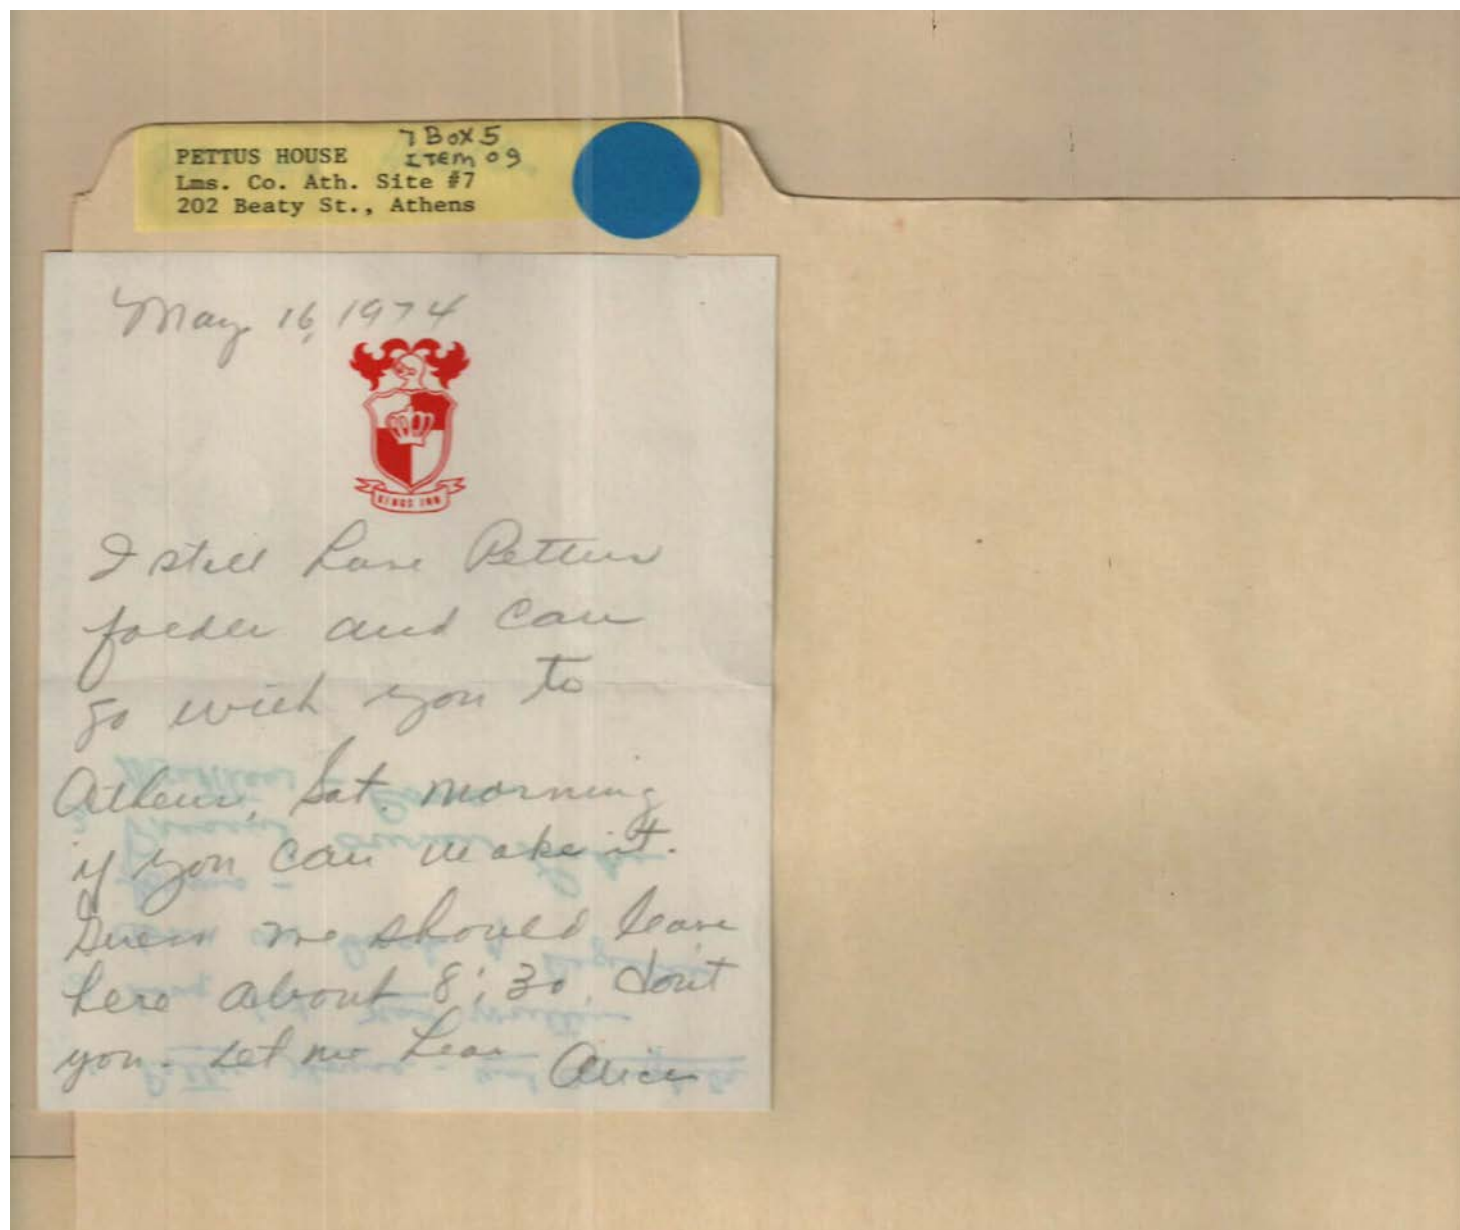 7 Box 5
PETTUS HOUSE ITEM 09
Lms. Co. Ath. Site #7
202 Beaty St., Athens
May 16, 1974
KINGS INN
I still have Pettus
folder and can
go with you to
Athens, Sat. morning
if you can make it.
Guess we should leave
here about 8:30, don't
you. Let me hear
Alice